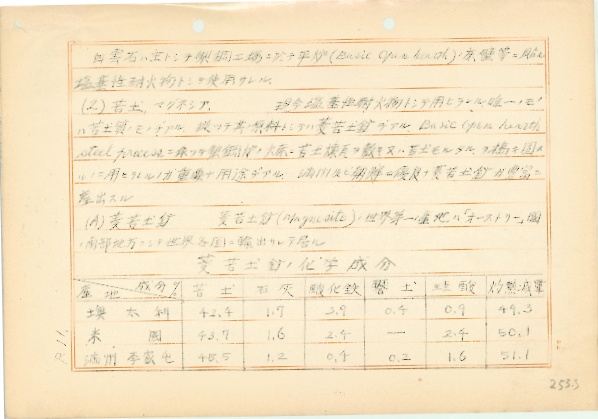 白雲石ハ主トシテ製鋼工場ニ於テ平炉(Basic Open hearth)ノ床壁等ニ
塩基性耐火物トシテ使用サレル.
(2) 苦土, マグネシヤ. 現今塩基性耐火物トシテ用ヒラレル唯一ノモノ
ハ苦土質ノモノデアル. 従ツテ其ノ原料トシテハ菱苦土鉱デアル. Basic Open hearth
steel process 苦土煉瓦 敷キ又ハ苦土モルタル
ニ用ヒラレルノガ重要ナ用途デアル. 満洲及ビ朝鮮ニ優良ナ菱苦土鉱ガ豊富ニ
産出スル
(A) 菱苦土鉱 菱苦土鉱(Magnesite)ノ世界第一ノ産地ハ「オーストリー」国
ノ南部地方ニシテ世界各国ニ輸出サレテ居ル
菱苦土鉱ノ化学成分
産地 成分% 苦土 石灰 酸化鉄 礬土 珪酸 灼熱減量
墺太利 42.4 1.7 3.9 0.4 0.9 49.3
米国 43.7 1.6 2.4 — 2.4 50.1
満州 45.5 1.2 0.4 0.2 1.6 51.1
P.11.
2533